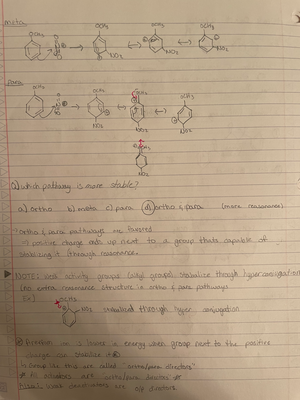 meta
OCH3 OCH3 OCH3 OCH3
NO2 NO2 NO2
para
OCH3 OCH3 OCH3 OCH3
NO2 NO2 NO2
OCH3
NO2
Q) which pathway is more stable?
a) ortho b) meta c) para d) ortho & para (more resonance)
* ortho & para pathways are favored
→ positive charge ends up next to a group thats capable of
stabilizing it through resonance.
NOTE: weak activity groups (alkyl groups) stabilize through hyperconjugation
(no extra resonance structure in ortho & para pathways
Ex)
NO2 stabilized through hyper conjugation
is lower in energy when group next to the positive
charge can stabilize it
↳ Groups like this are called ortho/para directors
* All activators are ortho/para directors *
are o/p directors